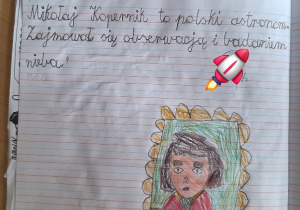 Mikołaj Kopernik to polski astronom.
Zajmował się obserwacją i badaniem
nieba!